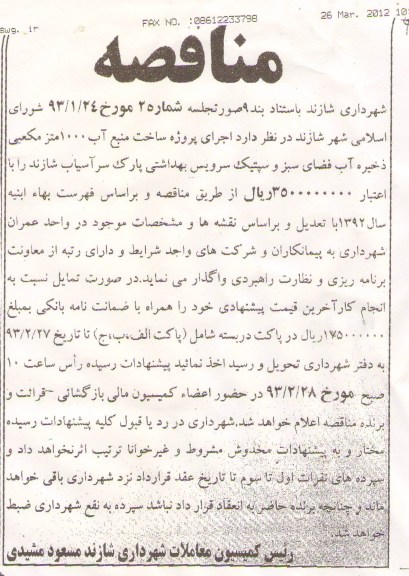 swg. ir
FAX NO. :08612233798
26 Mar. 2012 10:
مناقصه
شهرداری شازند باستناد بند۹صورتجلسه شماره۲ مورخ۹۳/۱/۲۴ شورای
اسلامی شهر شازند در نظر دارد اجرای پروژه ساخت منبع آب ۱۰۰۰متر مکعبی
ذخیره آب فضای سبز و سپتیک سرویس بهداشتی پارک سرآسیاب شازند را با
اعتبار ۳۵۰۰۰۰۰۰۰۰ریال از طریق مناقصه و براساس فهرست بهاء ابنیه
سال۱۳۹۲با تعدیل و براساس نقشه ها و مشخصات موجود در واحد عمران
شهرداری به پیمانکاران و شرکت های واجد شرایط و دارای رتبه از معاونت
برنامه ریزی و نظارت راهبردی واگذار می نماید.در صورت تمایل نسبت به
انجام کارآخرین قیمت پیشنهادی خود را همراه با ضمانت نامه بانکی بمبلغ
۱۷۵۰۰۰۰۰۰ریال در پاکت دربسته شامل (پاکت الف،ب،ج) تا تاریخ ۹۳/۲/۲۷
به دفتر شهرداری تحویل و رسید اخذ نمائید پیشنهادات رسیده رأس ساعت ۱۰
صبح مورخ ۹۳/۲/۲۸ در حضور اعضاء کمیسیون مالی بازگشائی -قرائت و
برنده مناقصه اعلام خواهد شد.شهرداری در رد یا قبول کلیه پیشنهادات رسیده
مختار و به پیشنهادات مخدوش مشروط و غیرخوانا ترتیب اثرنخواهد داد و
سپرده های نفرات اول تا سوم تا تاریخ عقد قرارداد نزد شهرداری باقی خواهد
ماند و چنانچه برنده حاضر به انعقاد قرار داد نباشد سپرده به نفع شهرداری ضبط
خواهد شد.
رئیس کمیسیون معاملات شهرداری شازند مسعود مشیدی